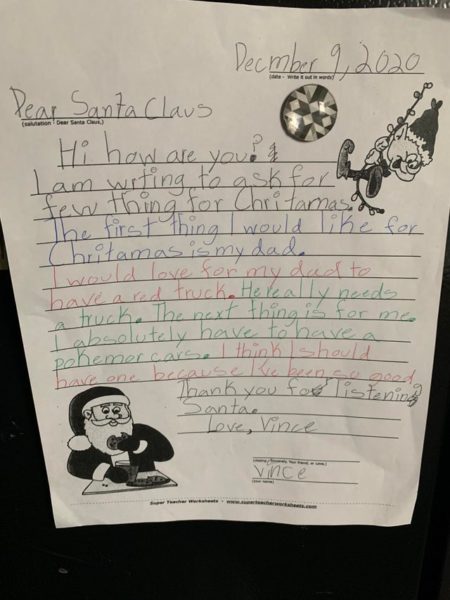 Decmber 9, 2020
(date - Write it out in words)
Dear Santa Claus
(salutation - Dear Santa Claus,)
Hi how are you?
I am writing to ask for
few thing for Chritamas.
The first thing I would like for
Chritamas is my dad.
I would love for my dad to
have a red truck. He really needs
a truck. The next thing is for me.
I absolutely have to have a
pokemor cars. I think I should
have one because I've been so good
Thank you for listening
Santa.
Love, Vince
vince
(your name)
Super Teacher Worksheets - www.superteacherworksheets.com